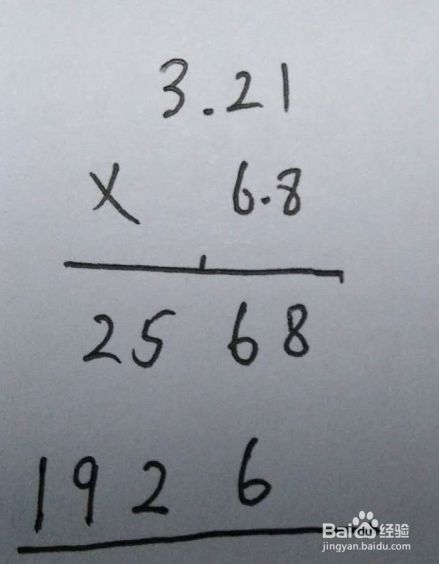 3.21
× 6.8
2568
1926
Baidu经验
jingyan.baidu.com